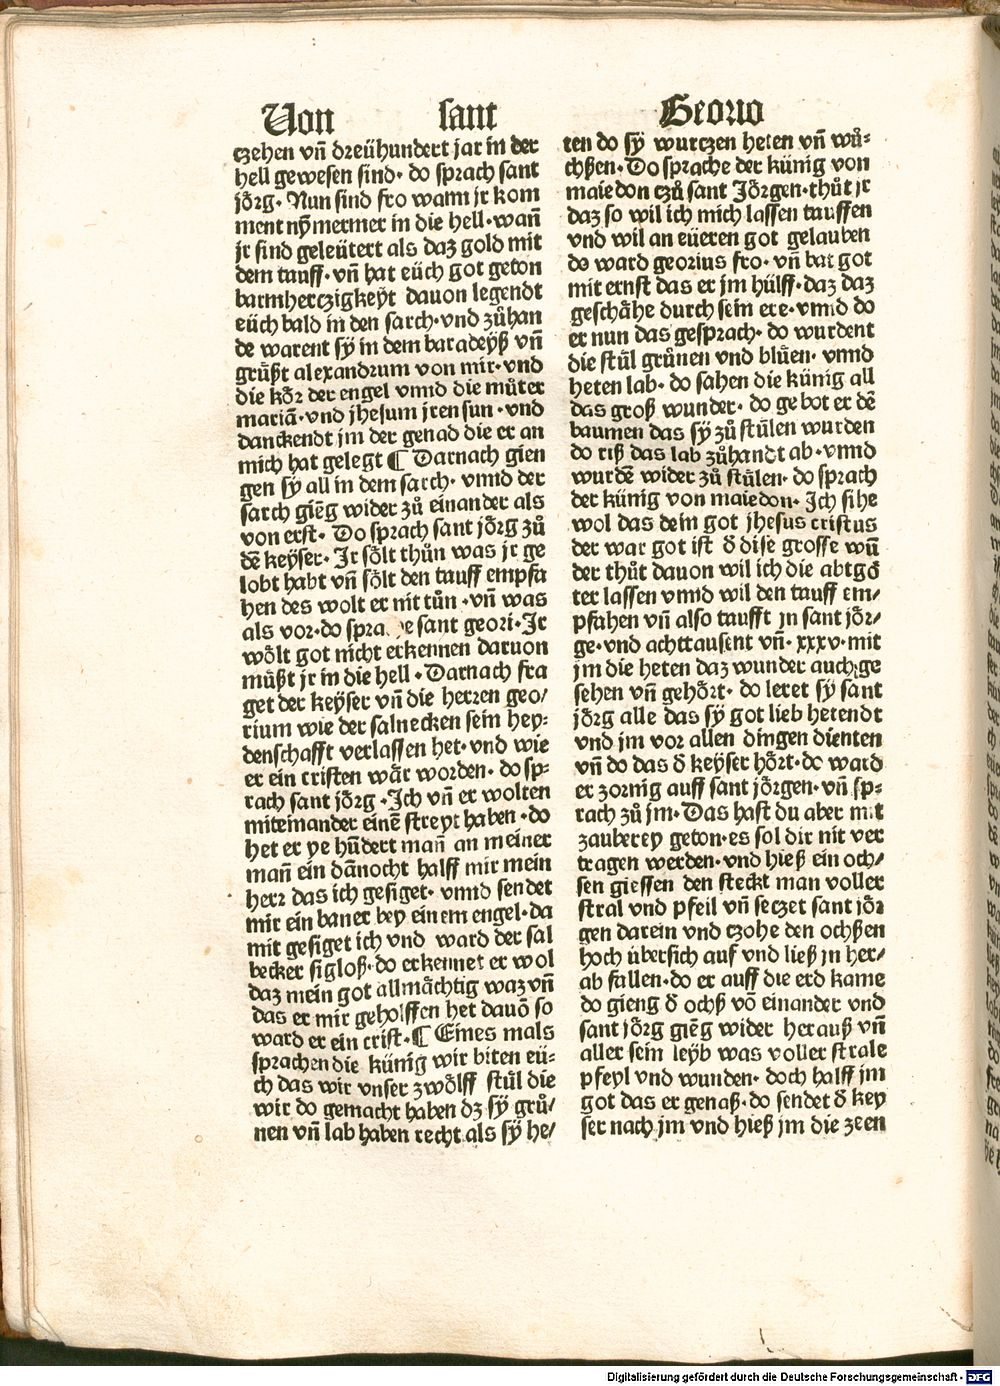 Von sant Georio
czehen vn̄ dreühundert jar in der
hell gewesen sind. do sprach sant
jörg. Nun sind fro wann jr kom
ment nÿmermer in die hell. wan̄
jr sind geleütert als daz gold mit
dem tauff. vn̄ hat eüch got geton
barmherczigkeyt dauon legendt
eüch bald in den sarch. vnd zůhan
de warent sÿ in dem baradeÿß vn̄
grüßt alexandrum von mir. vnd
die kör der engel vnnd die můter
mariā. vnd jhesum jren sun. vnd
danckendt jm der genad die er an
mich hat gelegt ¶ Darnach gien
gen sÿ all in dem sarch. vnnd der
sarch giēg wider zů einander als
von erst. Do sprach sant jörg zů
dē keÿser. Jr sölt thůn was jr ge
lobt habt vn̄ sölt den tauff empfa
hen des wolt er nit tůn. vn̄ was
als vor. do sprache sant geori. Jr
wölt got nicht erkennen daruon
můßt jr in die hell. Darnach fra
get der keÿser vn̄ die herren geo/
rium wie der salnecken sein hey⸗
denschafft verlassen het. vnd wie
er ein cristen wär worden. do sp⸗
rach sant jörg. Ich vn̄ er wolten
miteinander einē streyt haben. do
het er ye hūdert man̄ an meiner
man̄ ein dānocht halff mir mein
herr das ich gesiget. vnnd sendet
mir ein baner bey einem engel. da
mit gesiget ich vnd ward der sal
becker sigloß. do erkennet er wol
daz mein got allmächtig waz vn̄
das er mir geholffen het dauō so
ward er ein crist. ¶ Eines mals
sprachen die künig wir biten eü⸗
ch das wir vnser zwölff stül die
wir do gemacht haben dz sÿ grů/
nen vn̄ lab haben recht als sÿ he/
ten do sÿ wurczen heten vn̄ wů⸗
chßen. Do sprache der künig von
maiedon czů sant Jörgen. thůt jr
daz so wil ich mich lassen tauffen
vnd wil an eüeren got gelauben
do ward georius fro. vn̄ bat got
mit ernst das er jm hülff. daz daz
geschähe durch sein ere. vnnd do
er nun das gesprach. do wurdent
die stül grůnen vnd blüen. vnnd
heten lab. do sahen die künig all
das groß wunder. do gebot er dē
baumen das sÿ zů stülen wurden
do riß das lab zůhandt ab. vnnd
wurdē wider zů stülen. do sprach
der künig von maiedon. Ich sihe
wol das dein got jhesus cristus
der war got ist d̄ dise grosse wū
der thůt dauon wil ich die abtgö
ter lassen vnnd wil den tauff em/
pfahen vn̄ also taufft jn sant jör/
ge. vnd achttausent vn̄. xxxv. mit
jm die heten daz wunder auch ge
sehen vn̄ gehört. do leret sÿ sant
jörg alle das sÿ got lieb hetendt
vnd jm vor allen dingen dienten
vn̄ do das d̄ keÿser hört. do ward
er zornig auff sant jörgen. vn̄ sp⸗
rach zů jm. Das hast du aber mit
zauberey geton. es sol dir nit ver
tragen werden. vnd hieß ein och/
sen giessen den steckt man voller
stral vnd pfeil vn̄ seczet sant jör
gen darein vnd czohe den ochßen
hoch übersich auf vnd ließ jn her/
ab fallen. do er auff die erd kame
do gieng d̄ ochß vō einander vnd
sant jörg giēg wider herauß vn̄
aller sein leÿb was voller strale
pfeyl vnd wunden. doch halff jm
got das er genaß. do sendet d̄ key
ser nach jm vnd hieß jm die zeen
Digitalisierung gefördert durch die Deutsche Forschungsgemeinschaft - DFG